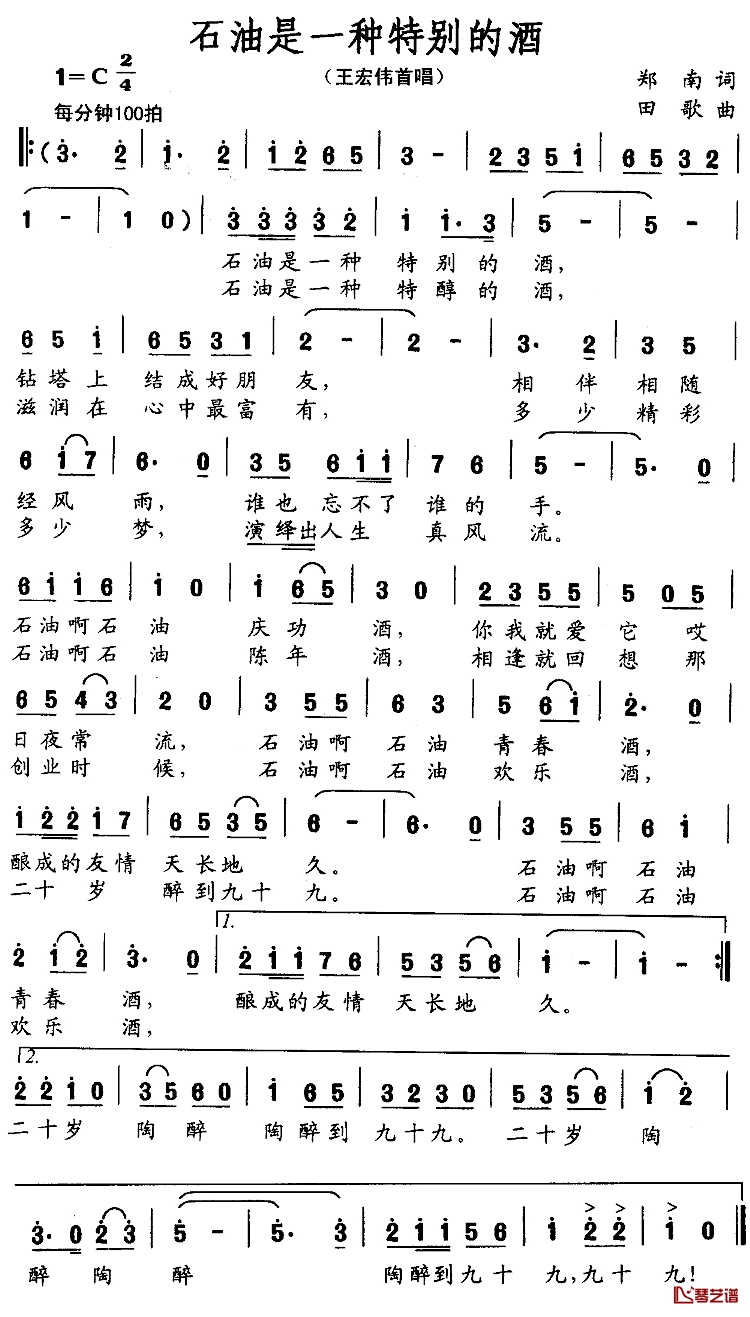 石油是一种特别的酒
1=C 2/4
（王宏伟首唱）
郑南词
每分钟100拍
田歌曲
(3· 2 | 1· 2 | 1 2 6 5 | 3 - | 2 3 5 1 | 6 5 3 2
1 - | 1 0) | 3 3 3 3 2 | 1 1· 3 | 5 - | 5 - |
石油是一种 特别的酒，
石油是一种 特醇的酒，
6 5 1 | 6 5 3 1 | 2 - | 2 - | 3· 2 | 3 5
钻塔上 结成好朋友， 相伴相随
滋润在 心中最富有， 多少精彩
6 1 7 | 6· 0 | 3 5 6 1 1 | 7 6 | 5 - | 5· 0
经风雨， 谁也忘不了谁的手。
多少梦， 演绎出人生真风流。
6 1 1 6 | 1 0 | 1 6 5 | 3 0 | 2 3 5 5 | 5 0 5
石油啊石油 庆功酒， 你我就爱它哎
石油啊石油 陈年酒， 相逢就回想那
6 5 4 3 | 2 0 | 3 5 5 | 6 3 | 5 6 1 | 2· 0
日夜常流， 石油啊石油青春酒，
创业时候， 石油啊石油欢乐酒，
1 2 2 1 7 | 6 5 3 5 | 6 - | 6· 0 | 3 5 5 | 6 1
酿成的友情 天长地久。 石油啊石油
二十岁 醉到九十九。 石油啊石油
1.
2 1 2 | 3· 0 | 2 1 1 7 6 | 5 3 5 6 | 1 - | 1 - :‖
青春酒， 酿成的友情 天长地久。
欢乐酒，
2.
2 2 1 0 | 3 5 6 0 | 1 6 5 | 3 2 3 0 | 5 3 5 6 | 1 2
二十岁 陶醉 陶醉到 九十九。 二十岁 陶
3· 0 2 3 | 5 - | 5· 3 | 2 1 1 5 6 | 1 2 2 | 1 0 ‖
醉 陶醉 陶醉到九十九，九十九！
琴艺谱